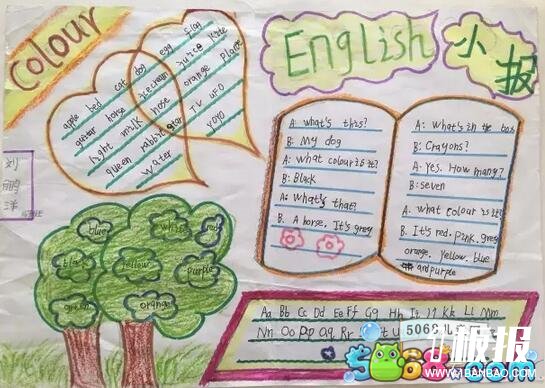 colour
English 小报
egg flag
cat dog juice kite
apple bed icecream orange plane
guitar horse nose
light milk TV UFO
queen rabbit star YOYO
water
A: what's this?
B: My dog
A: What colour is it?
B: Black
A: What's that?
B. A horse. It's grey
A: What's in the box
B: Crayons?
A: Yes. How many?
B: seven
A. what colour is it?
B. It's red. pink. grey
orange. yellow. blue
and purple
刘
鹏
洋
blue white red
black yellow purple
green orange
Aa Bb Cc Dd Ee Ff Gg Hh Ii Jj Kk Ll Mm
Nn Oo Pp Qq Rr
板报
WWW.1BANBAO.COM